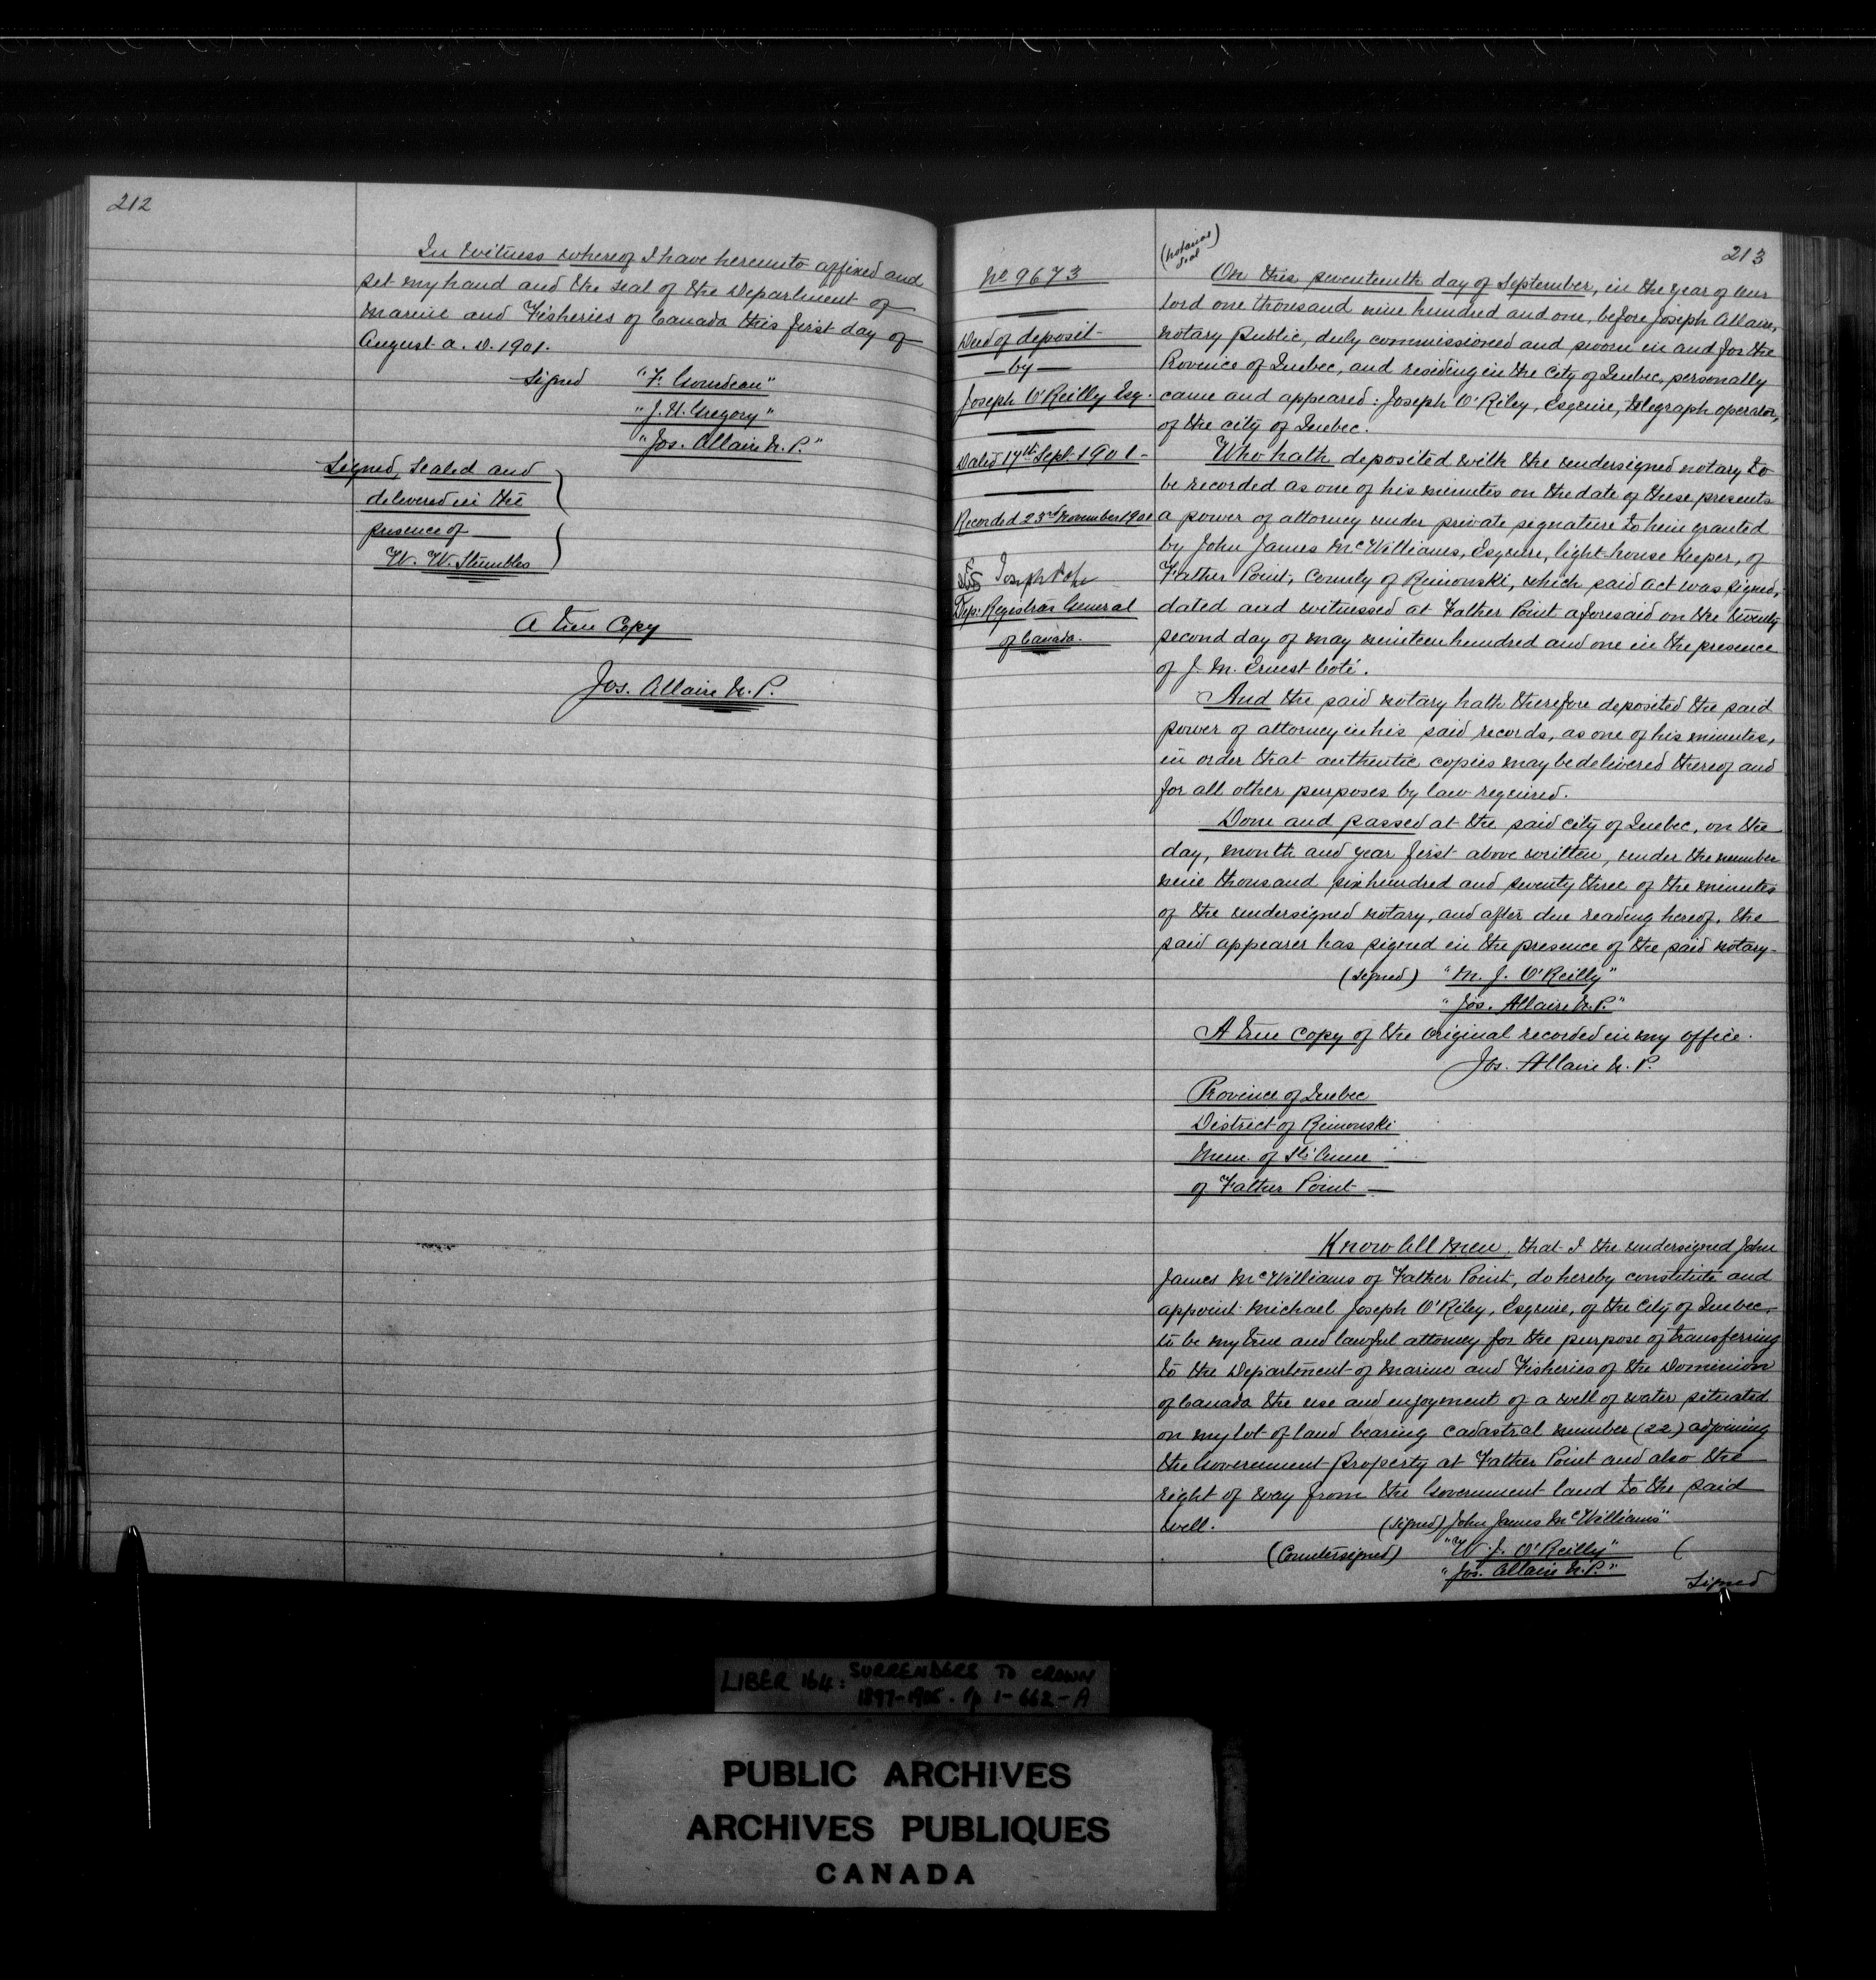 212
In witness whereof I have hereunto affixed and
set my hand and the seal of the Department of
Marine and Fisheries of Canada this first day of
August A. D. 1901.
Signed "F. Gourdeau"
"J. U. Gregory"
"Jos. Allaire N. P."
Signed, Sealed and
delivered in the
presence of
W. W. Stumbles
A true Copy
Jos. Allaire N. P.
213
(notarial
seal)
No 9673
Deed of deposit
by
Joseph O'Reilly Esq.
Dated 17th Sept. 1901
Recorded 23rd November 1901
Joseph Pope
Dep. Registrar General
of Canada.
On this seventeenth day of September, in the year of Our
lord one thousand nine hundred and one, before Joseph Allaire,
notary Public, duly commissioned and sworn in and for the
Province of Quebec, and residing in the City of Quebec, personally
came and appeared: Joseph O'Riley, Esquire, telegraph operator,
of the city of Quebec.
Who hath deposited with the undersigned notary to
be recorded as one of his minutes on the date of these presents
a power of attorney under private signature to him granted
by John James McWilliams, Esquire, light-house keeper, of
Father Point, County of Rimouski, which said act was signed,
dated and witnessed at Father Point aforesaid on the twenty
second day of May nineteen hundred and one in the presence
of J. M. Ernest Coté.
And the said notary hath therefore deposited the said
power of attorney in his said records, as one of his minutes,
in order that authentic copies may be delivered thereof and
for all other purposes by law required.
Done and passed at the said City of Quebec, on the
day, month and year first above written, under the number
nine thousand six hundred and seventy three of the minutes
of the undersigned notary, and after due reading hereof, the
said appearer has signed in the presence of the said notary
(signed) "M. J. O'Reilly"
"Jos. Allaire N.P."
A true copy of the original recorded in my office.
Jos. Allaire N. P.
Province of Quebec
District of Rimouski
Mun. of Ste Anne
of Father Point
Know all men, that I the undersigned John
James McWilliams of Father Point, do hereby constitute and
appoint Michael Joseph O'Riley, Esquire, of the City of Quebec,
to be my true and lawful attorney for the purpose of transferring
to the Department of Marine and Fisheries of the Dominion
of Canada the use and enjoyment of a well of water situated
on my lot of land bearing cadastral number (22) adjoining
the Government property at Father Point and also the
right of way from the Government land to the said
well. (signed) John James McWilliams"
(Countersigned) "W. J. O'Reilly"
"Jos. Allaire N.P."
Signed
LIBER 164: SURRENDERS TO CROWN
1897-1905. Pp 1-662-A
PUBLIC ARCHIVES
ARCHIVES PUBLIQUES
CANADA